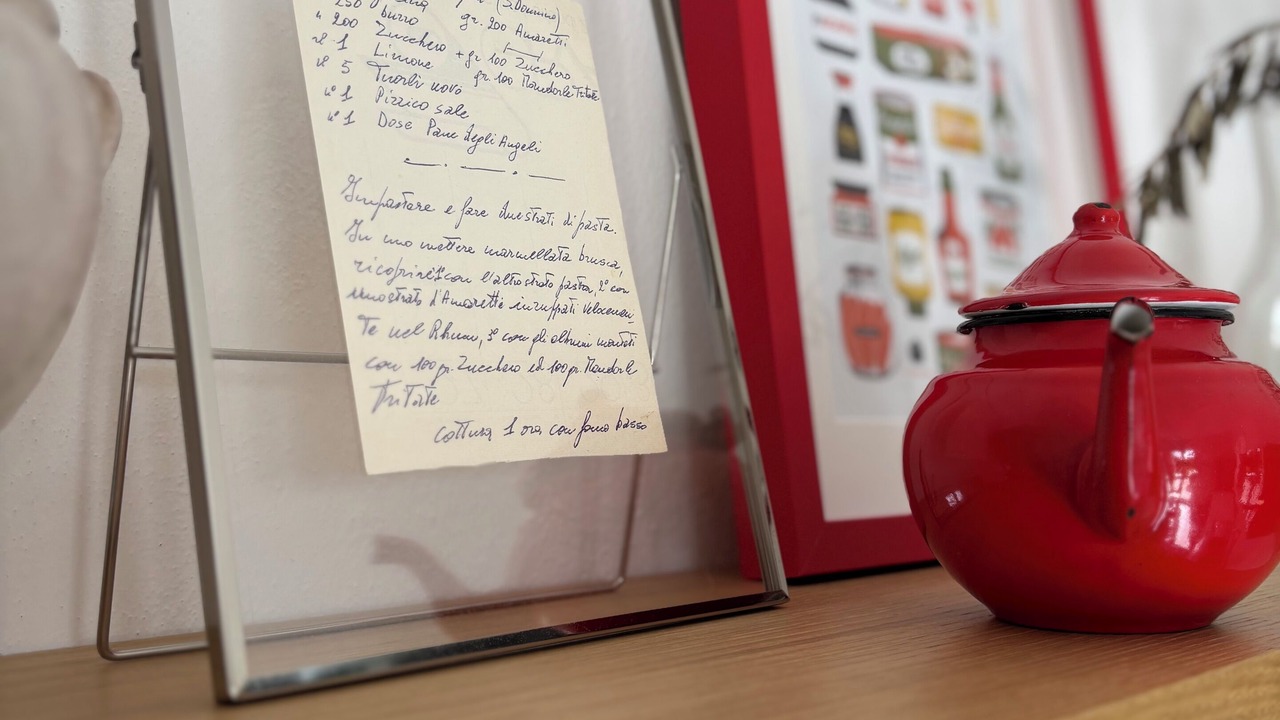 250 burro gr. 200 Amaretti
" 200 Zucchero + gr 100 Zucchero
n° 1 Limone gr. 100 Mandorle Tritate
n° 5 Tuorli uovo
n° 1 Pizzico sale
n° 1 Dose Pane degli Angeli
Impastare e fare due strati di pasta.
In uno mettere marmellata brusca,
ricoprire 1° con l'altro strato pasta, 2° con
uno strato d'Amaretti inzuppati velocemen-
te nel Rhum, 3° con gli albumi montati
con 100 gr. Zucchero ed 100 gr. Mandorle
Tritate
Cottura 1 ora con forno basso